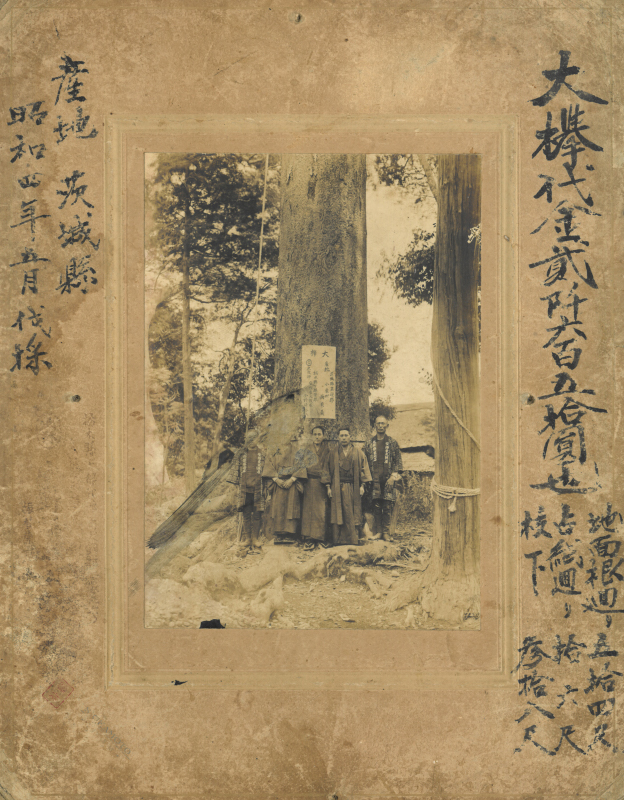 大欅代金貳阡六百五拾圓也
地面根廻り 五拾四尺
廻り 拾六尺
枝下 参拾八尺
大欅
産地 茨城縣
昭和四年五月伐採